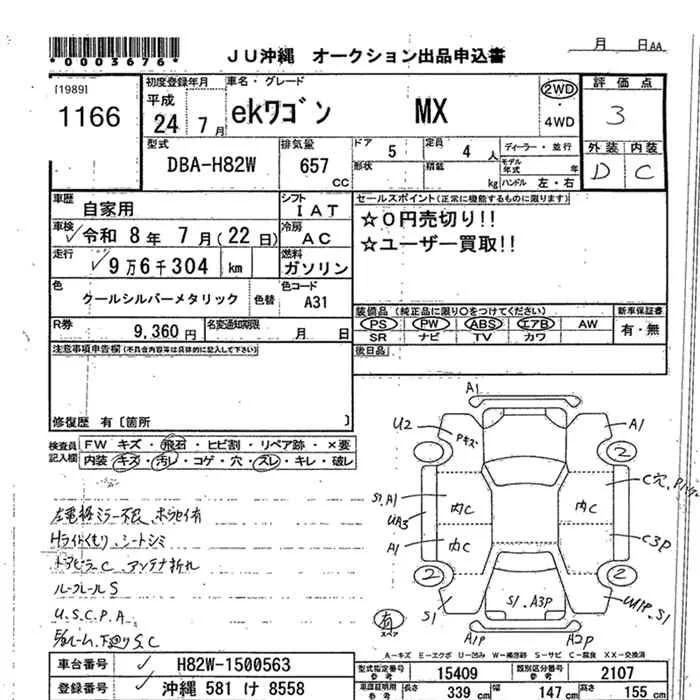 *0003676*
JU沖縄 オークション出品申込書
月 日AA
[1989]
1166
初度登録年月
平成
24 7月
車名・グレード
ekワゴン MX
2WD
・
4WD
評価点
3
外装 内装
D C
型式
DBA-H82W
排気量
657
cc
ドア 5
定員 4 人
形状
積載 kg
ディーラー・並行
モデル年式 年
ハンドル 左・右
車歴
自家用
シフト
IAT
車検
令和 8年 7月(22日)
冷房
AC
走行
9万6千304 km
燃料
ガソリン
色
クールシルバーメタリック
色替
色コード
A31
R券
9,360円
名変通知期限
月 日
セールスポイント(正常に機能するものに限ります)
☆0円売切り!!
☆ユーザー買取!!
装備品(純正品に限り○をつけてください)
PS PW ABS エアB AW
SR ナビ TV カワ
新車保証書
有・無
後日品
注意事項申告欄(不具合内容等は具体的に記入して下さい)
修復歴 有〔箇所 〕
検査員
記入欄
FW キズ・飛石・ヒビ割・リペア跡・×要
内装 キズ・汚レ・コゲ・穴・スレ・キレ・破レ
左電格ミラー不良、ホラセイ有
Hライトくもり、シートシミ
アンテナ折れ
ルーフレールS
U.S.C.P.A
下廻りS.C
A1
U2
Pキズ
A1
2
2
C穴
S1.A1
内C
内C
UA3
A1
内C
C3P
2
2
S1
S1.A3P
U1P.S1
A1P
A2P
有
スペア
A-キズ E-エクボ U-凹み W-補修跡 S-サビ C-腐食 XX-交換済
車台番号
H82W-1500563
登録番号
沖縄 581 け 8558
型式指定番号
参考
15409
類別区分番号
参考
2107
車庫証明用
参考
長さ 339 cm
幅 147 cm
高さ 155 cm